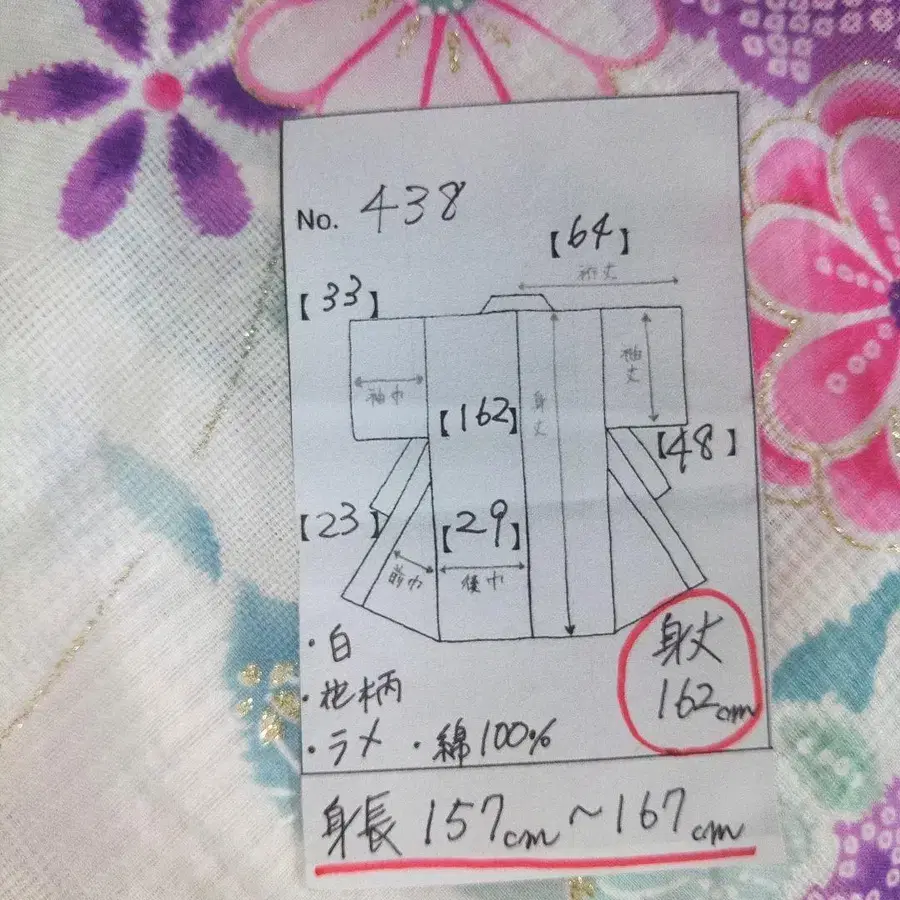 No. 438
【64】
裄丈
【33】
袖巾
袖丈
【162】
身丈
【48】
【23】
【29】
前巾
後巾
・白
・花柄
・ラメ ・綿100%
身丈
162cm
身長 157cm〜167cm